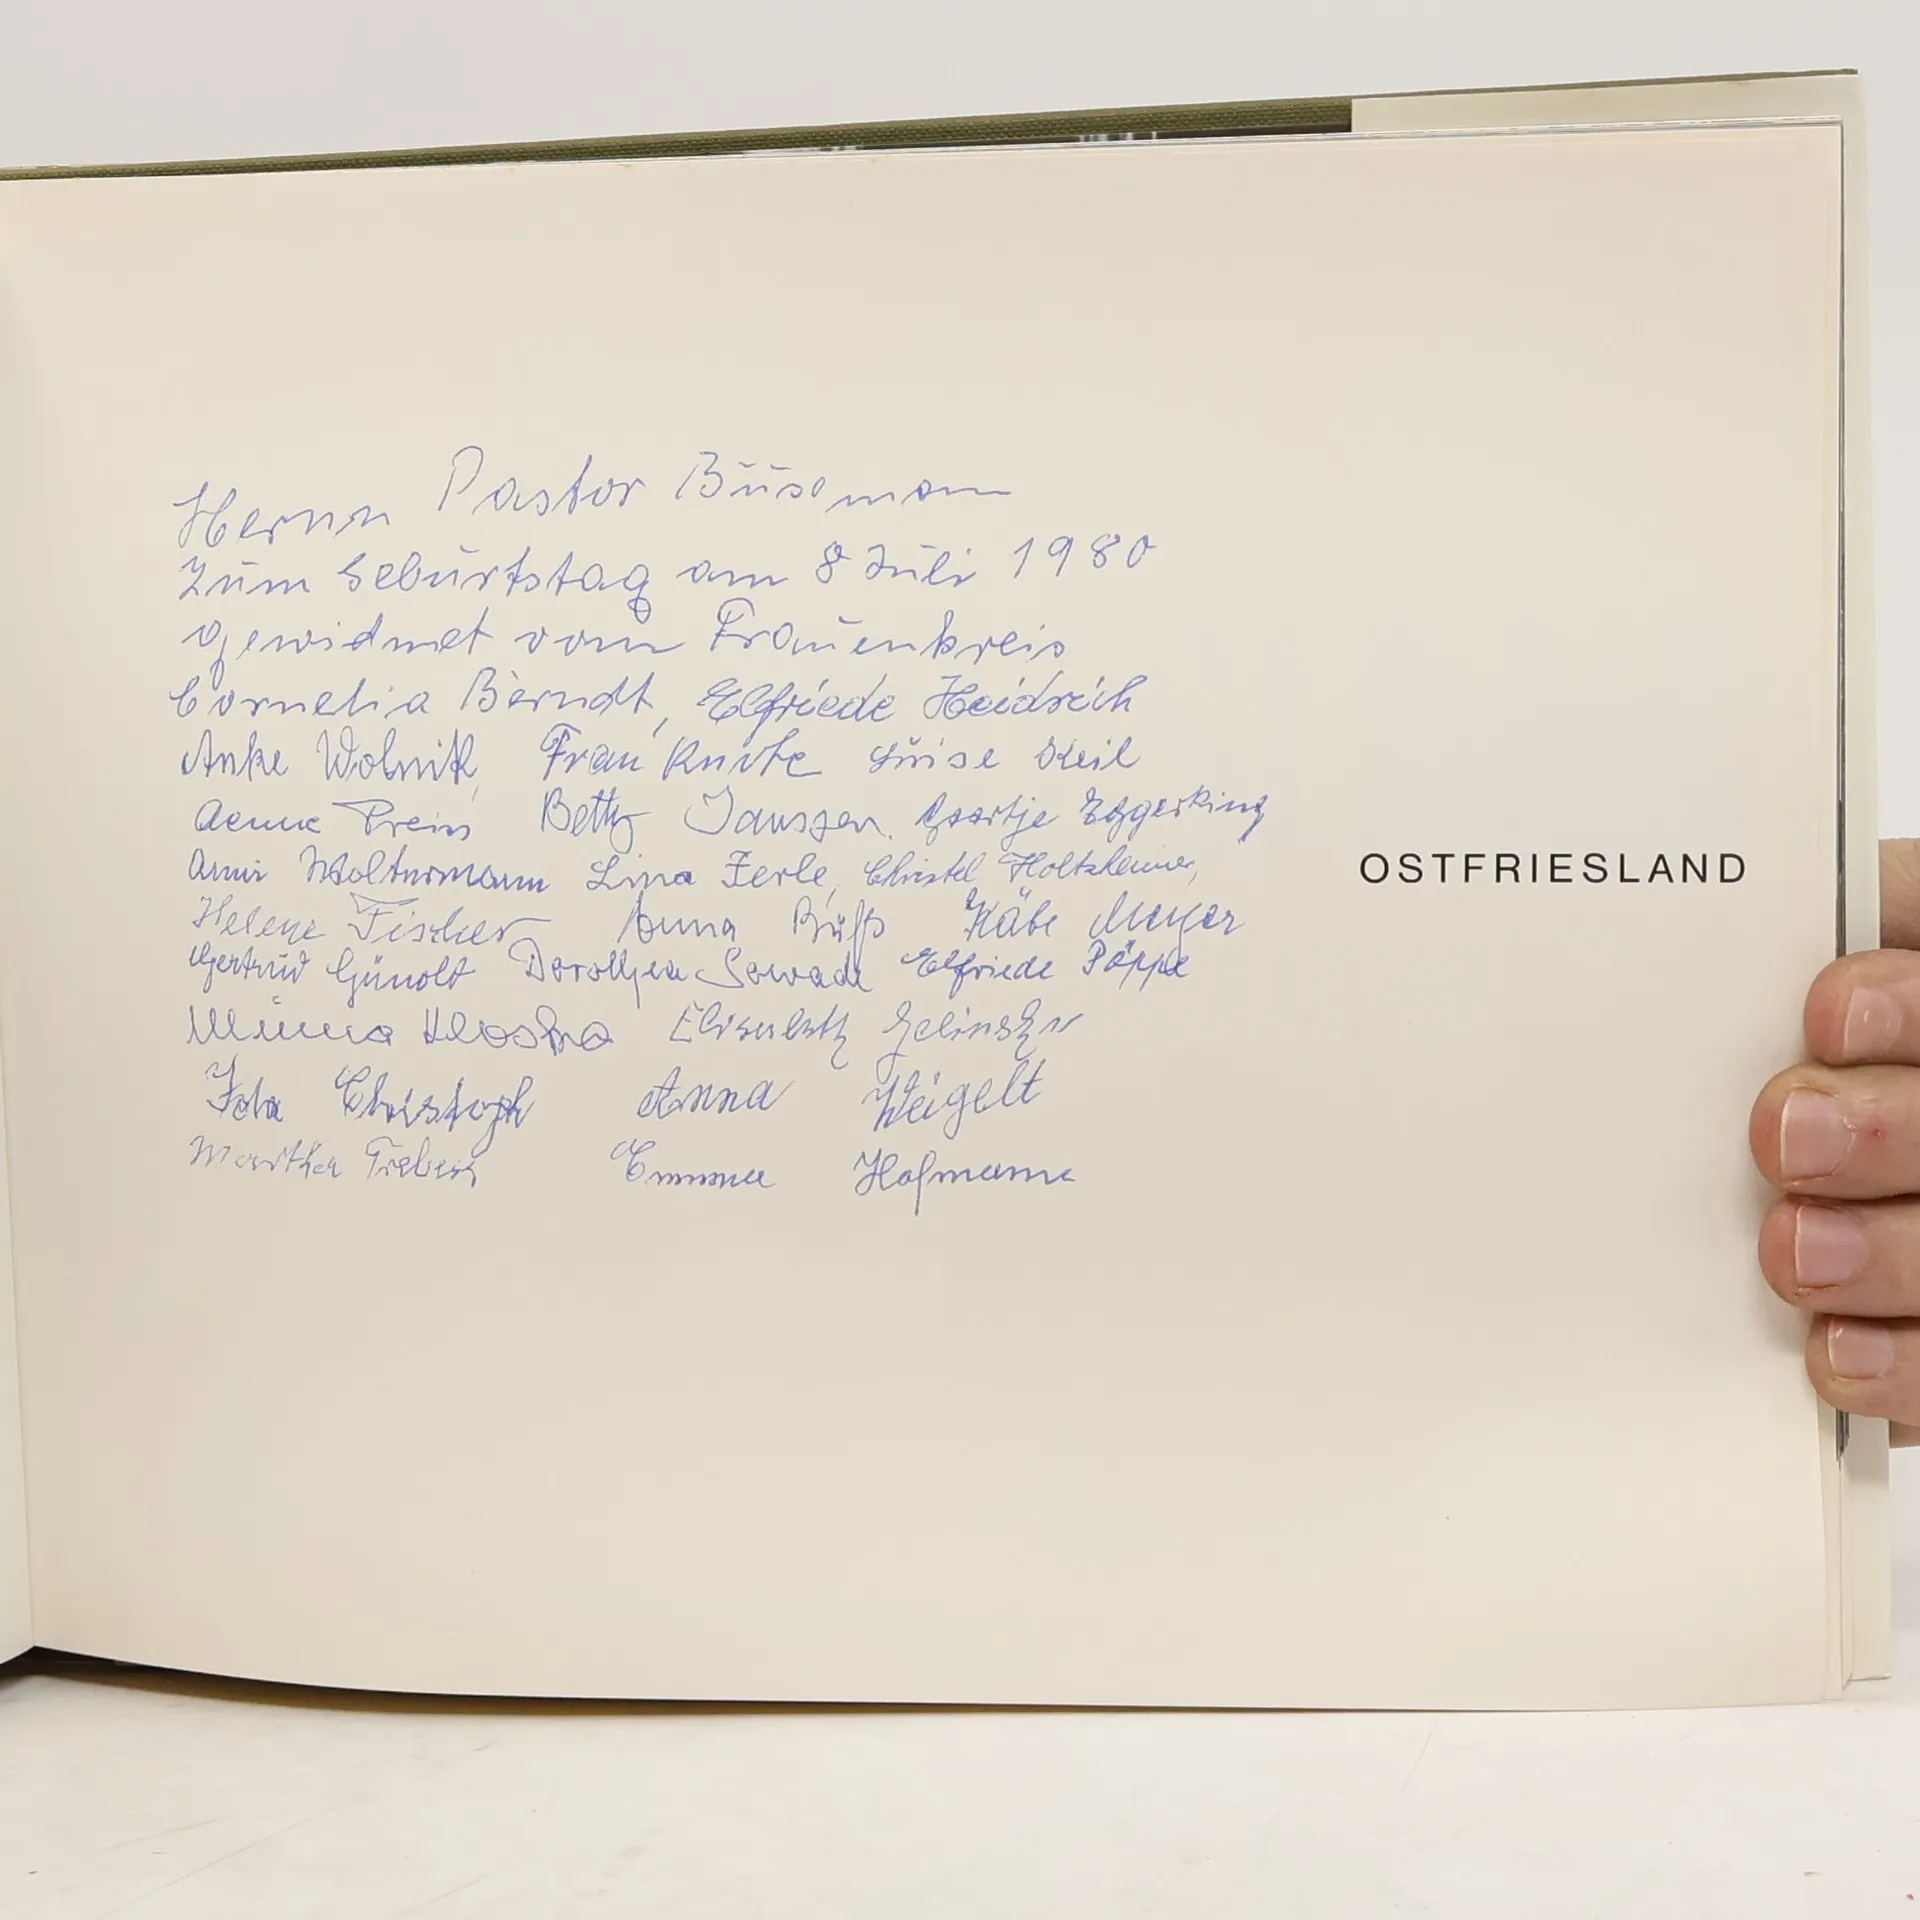 Herrn Pastor Büssmann
zum Geburtstag am 8 Juli 1980
gewidmet vom Frauenkreis
Cornelia Berndt, Elfriede Heidrich
Anke Wolnik, Frau Luise Keil
Aenne Preiss Betty Janssen. Eggerking
Anni Woltermann Lina Ferle, Christel
Helene Fischer Anna Meyer
Gertrud Dorothea Elfriede Pöppe
Minna Elisabeth
Ida Christoph Anna Weigelt
Martha Emma Hofmann
OSTFRIESLAND